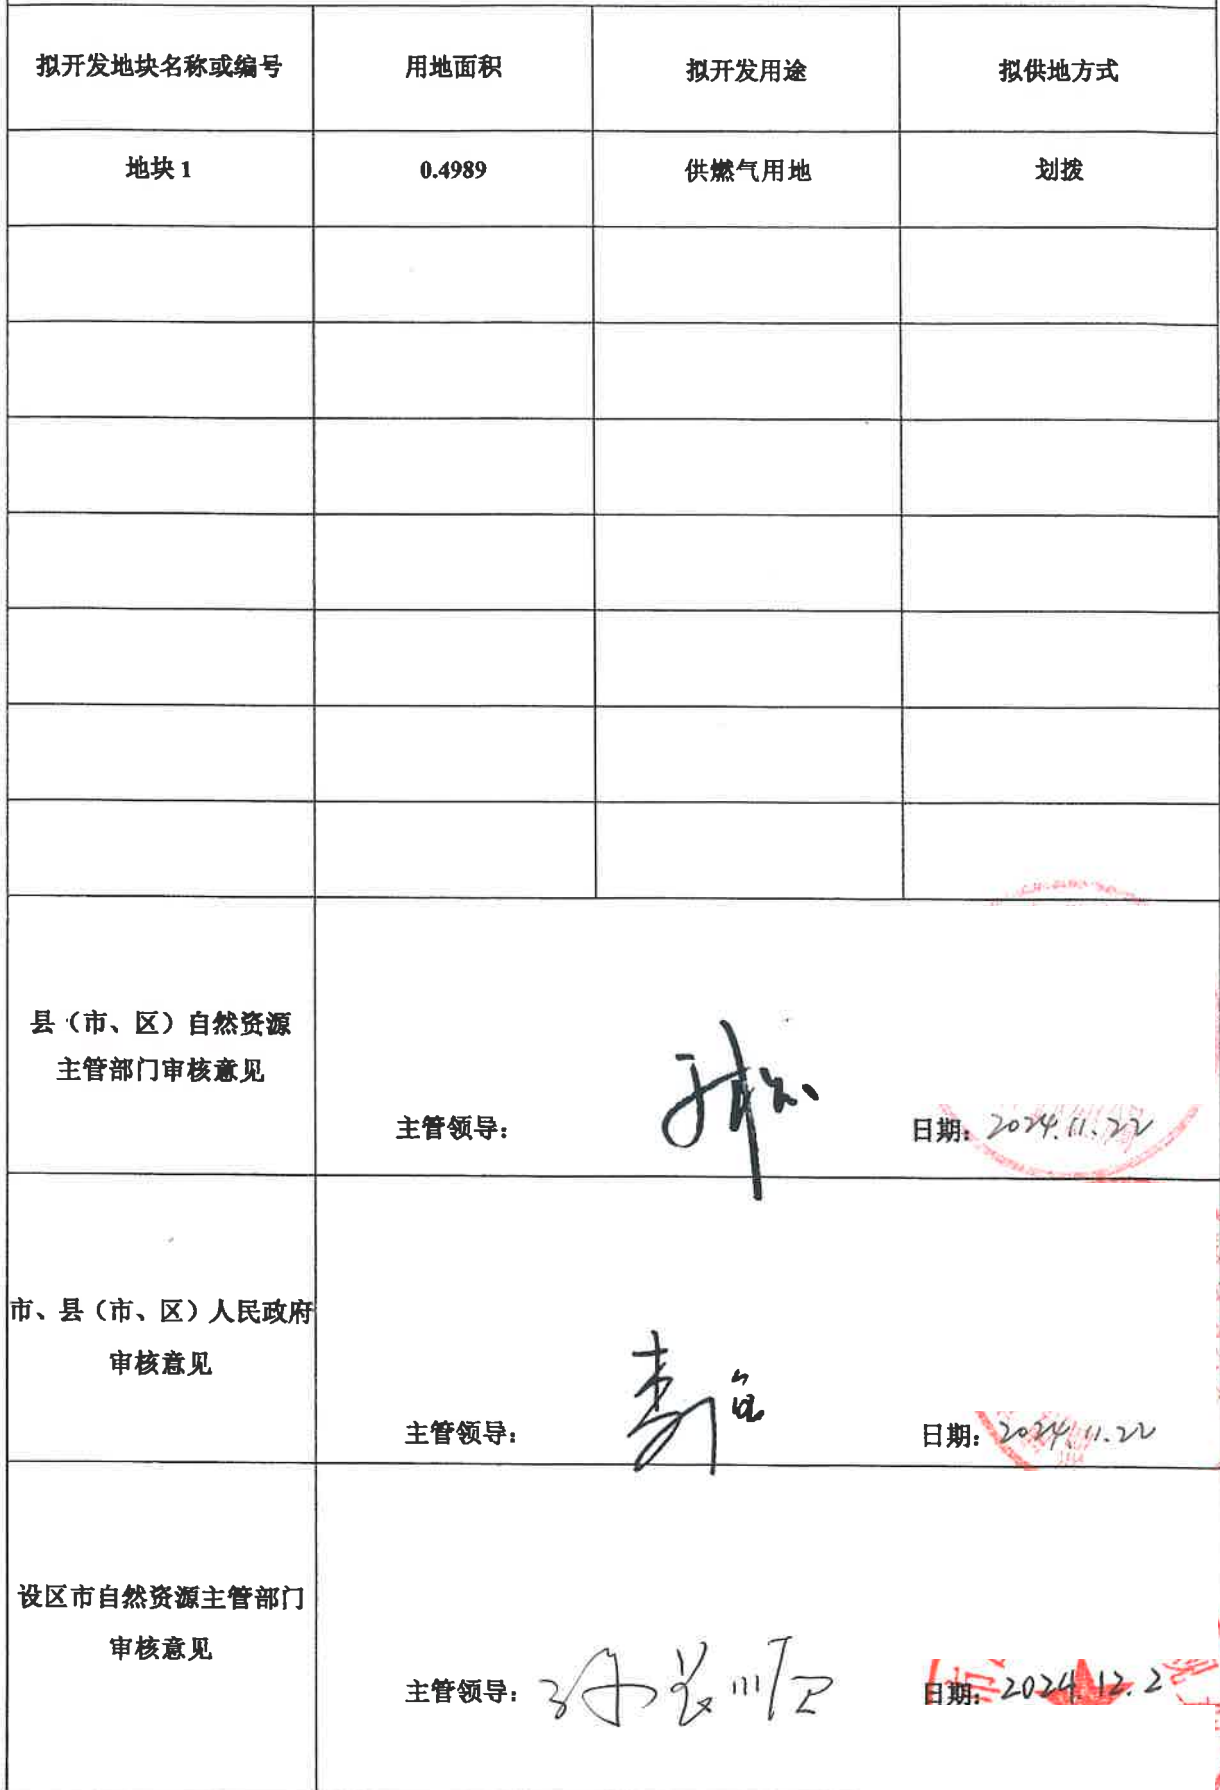 拟开发地块名称或编号 用地面积 拟开发用途 拟供地方式
地块 1 0.4989 供燃气用地 划拨
县（市、区）自然资源
主管部门审核意见
主管领导： 日期：2024.11.22
市、县（市、区）人民政府
审核意见
主管领导： 日期：2024.11.22
设区市自然资源主管部门
审核意见
主管领导： 日期：2024.12.2